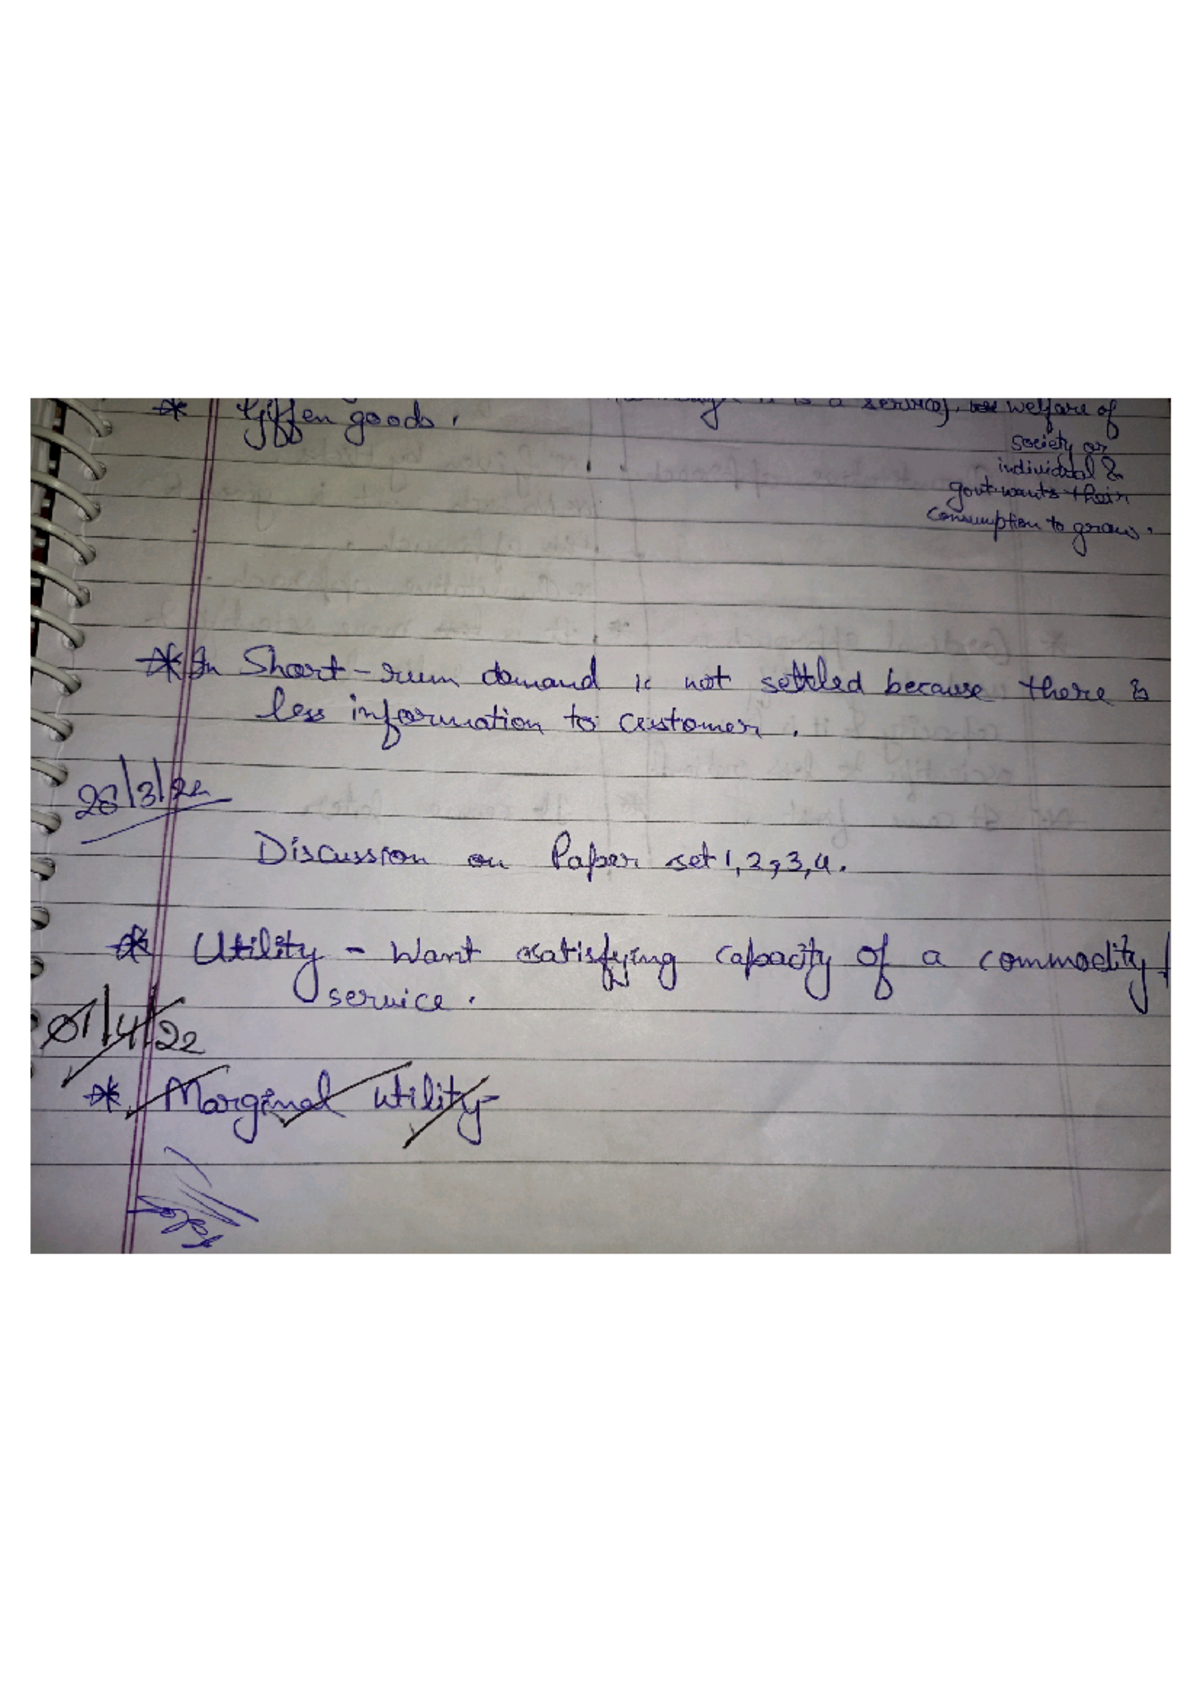 * Giffen goods.
is a service), welfare of
society or
individual &
govt wants their
consumption to grow.
* In Short-run demand is not settled because there is
less information to customer.
28/3/22
Discussion on Paper set 1,2,3,4.
* Utility - Want satisfying capacity of a commodity/
service.
01/4/22
* Marginal utility-